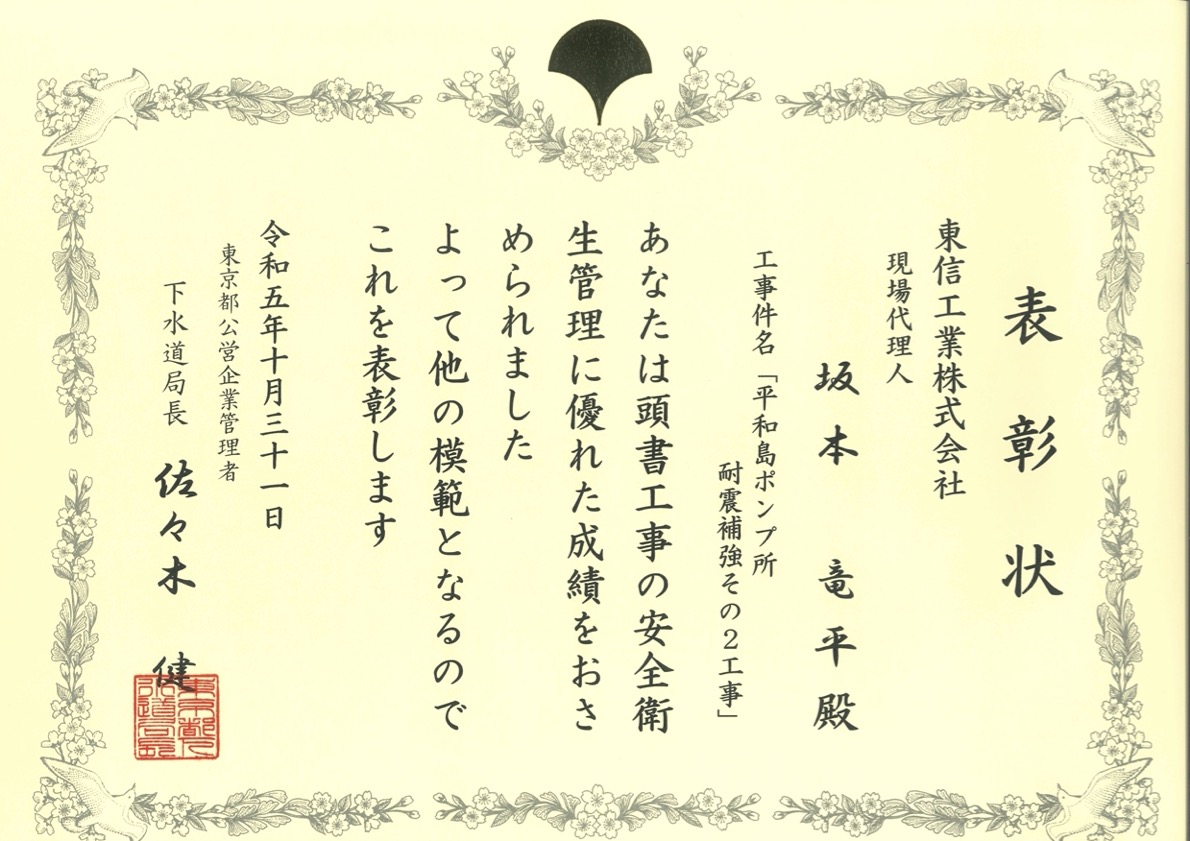 表彰状
東信工業株式会社
現場代理人
坂本 竜平殿
工事件名「平和島ポンプ所
耐震補強その2工事」
あなたは頭書工事の安全衛
生管理に優れた成績をおさ
められました
よって他の模範となるので
これを表彰します
令和五年十月三十一日
東京都公営企業管理者
下水道局長 佐々木 健